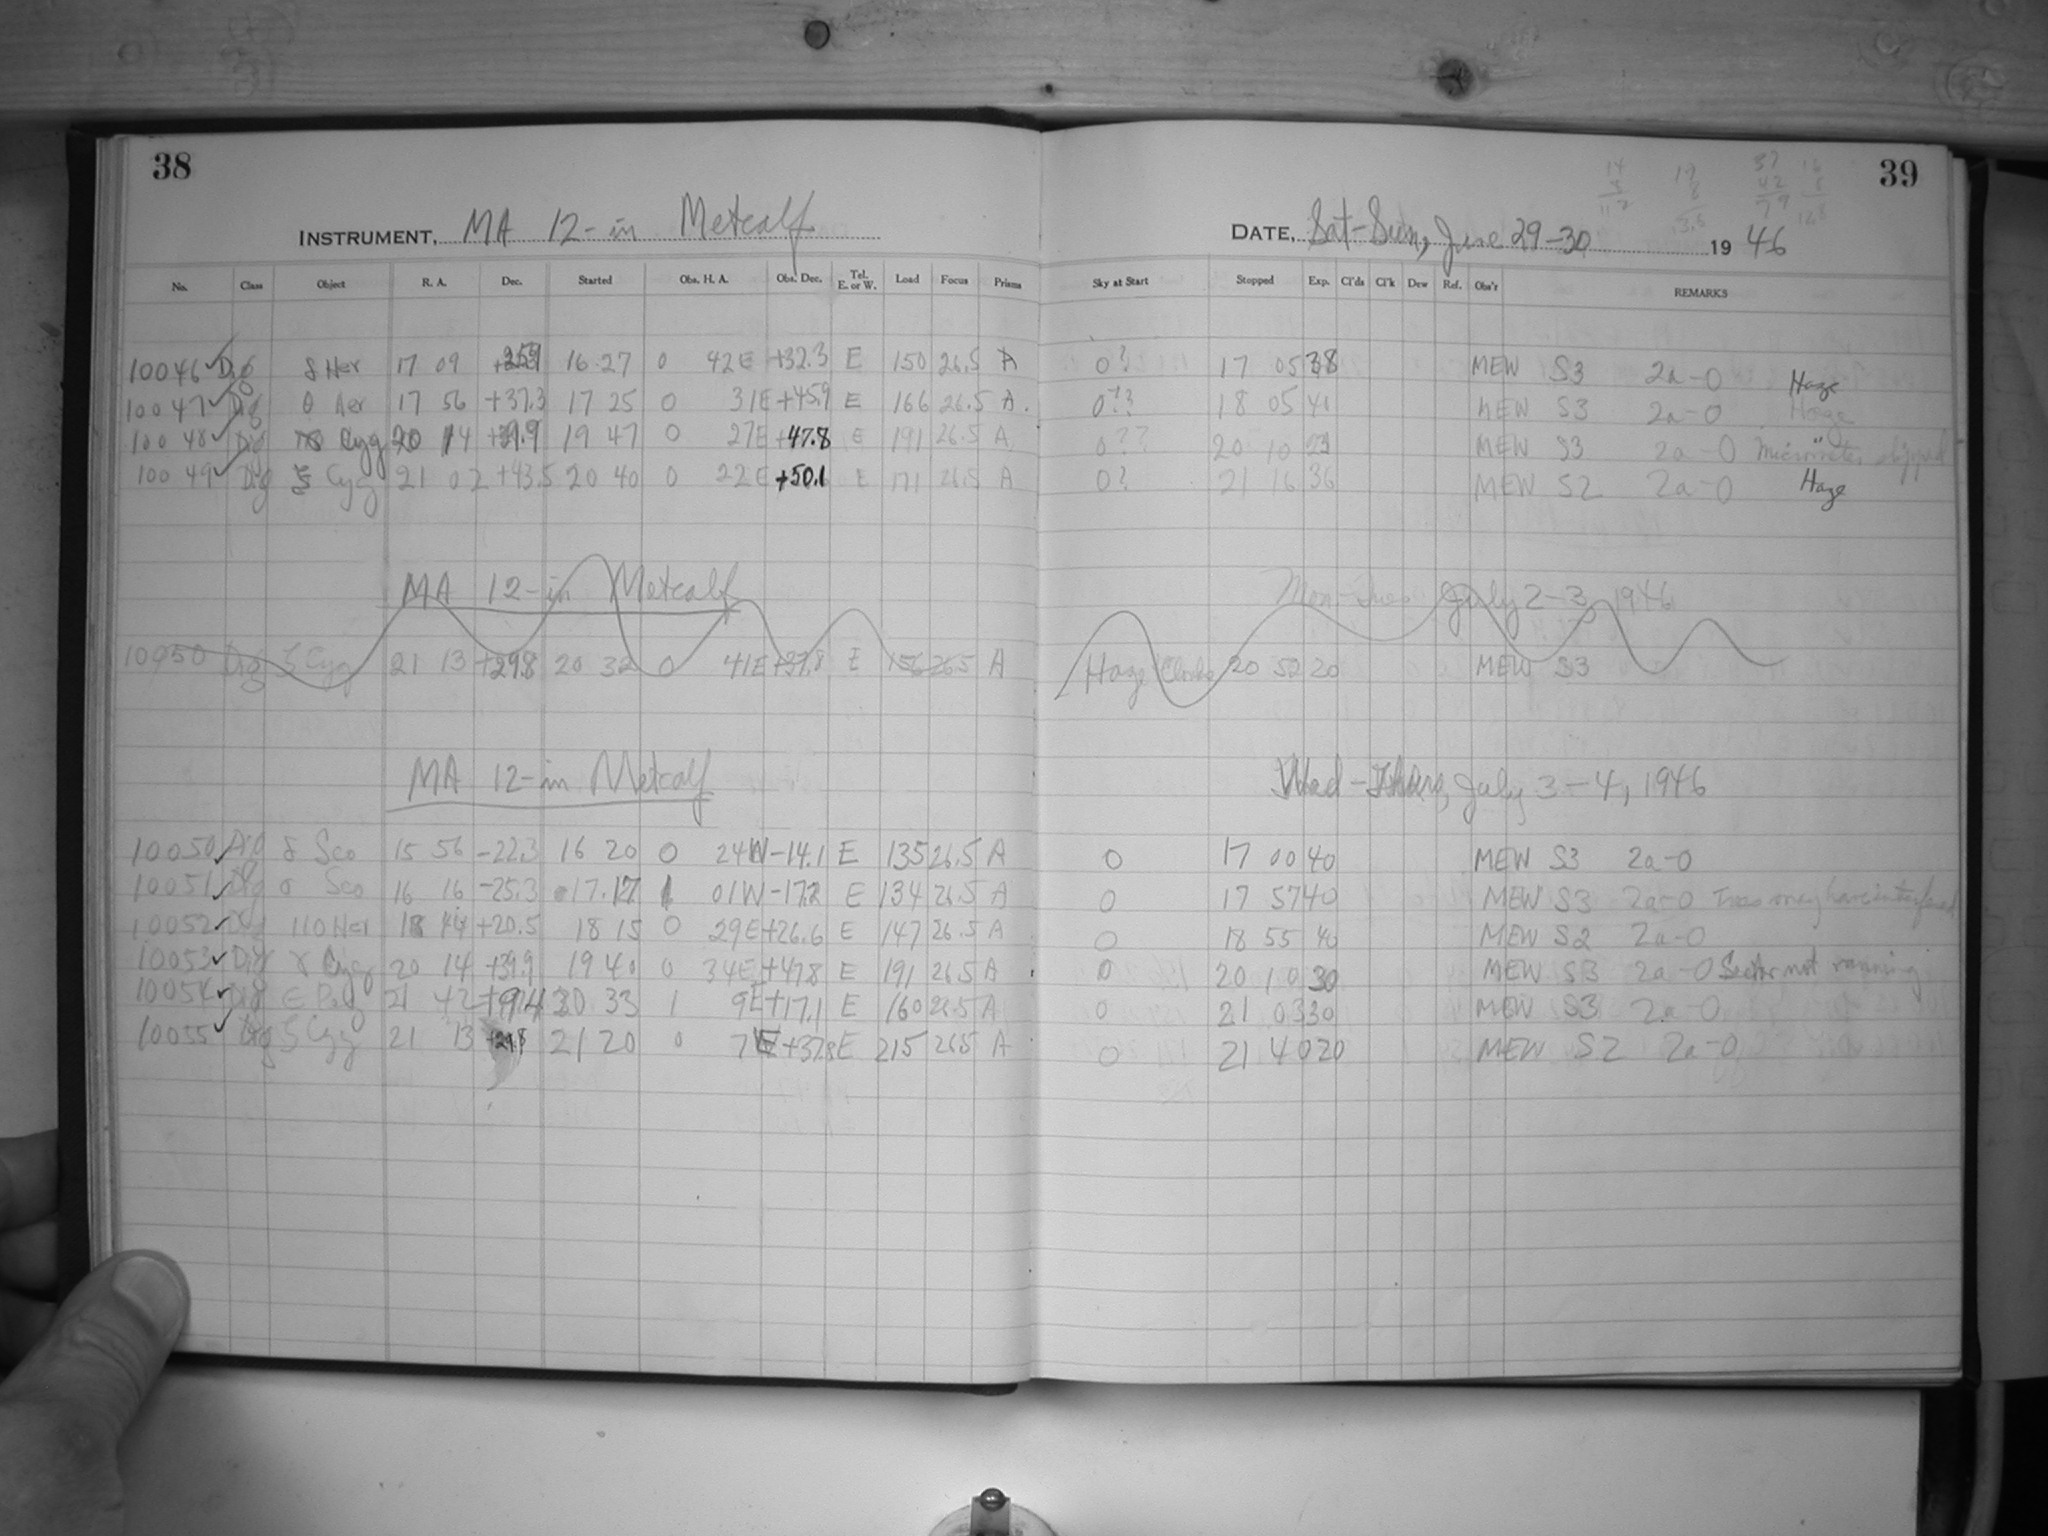 38
39
INSTRUMENT, MA 12-in Metcalf
DATE, Sat-Sun, June 29-30 1946
No. Class Object R. A. Dec. Started Obs. H. A. Obs. Dec. Tel. E. or W. Load Focus Prisms Sky at Start Stopped Exp. Cl'ds Cl'k Dew Ref. Obs'r REMARKS
10046 ✓ δ Her 17 09 16 27 0 42E +32.3 E 150 26.5 A 0? 17 05 38 MEW S3 2a-0 Haze
10047 ✓ θ Her 17 56 +37.3 17 25 0 31E +45.9 E 166 26.5 A. 0?? 18 05 41 MEW S3 2a-0 Haze
10048 ✓ Cyg 20 14 +39.9 19 47 0 27E +47.8 E 191 26.5 A 0?? 20 10 23 MEW S3 2a-0 Micrometer slipped
10049 ✓ ξ Cyg 21 02 +43.5 20 40 0 22E +50.1 E 171 26.5 A 0? 21 16 36 MEW S2 2a-0 Haze
MA 12-in Metcalf Mon-Tues July 2-3, 1946
10050 ζ Cyg 21 13 +29.8 20 32 0 41E +37.8 E 156 26.5 A Haze Clouds 20 52 20 MEW S3
MA 12-in Metcalf Wed-Thurs, July 3-4, 1946
10050 ✓ δ Sco 15 56 -22.3 16 20 0 24W -14.1 E 135 26.5 A 0 17 00 40 MEW S3 2a-0
10051 ✓ σ Sco 16 16 -25.3 17 17 1 01W -17.2 E 134 26.5 A 0 17 57 40 MEW S3 2a-0 Trees may have interfered
10052 ✓ 110 Her 18 44 +20.5 18 15 0 29E +26.6 E 147 26.5 A 0 18 55 40 MEW S2 2a-0
10053 ✓ γ Cyg 20 14 +39.9 19 40 0 34E +47.8 E 191 26.5 A 0 20 10 30 MEW S3 2a-0 Sector not running
10054 ✓ ε Peg 21 42 +9.4 20 33 1 9E +17.1 E 160 26.5 A 0 21 03 30 MEW S3 2a-0
10055 ✓ ζ Cyg 21 13 +29.8 21 20 0 7 +37.8 E 215 26.5 A 0 21 40 20 MEW S2 2a-0